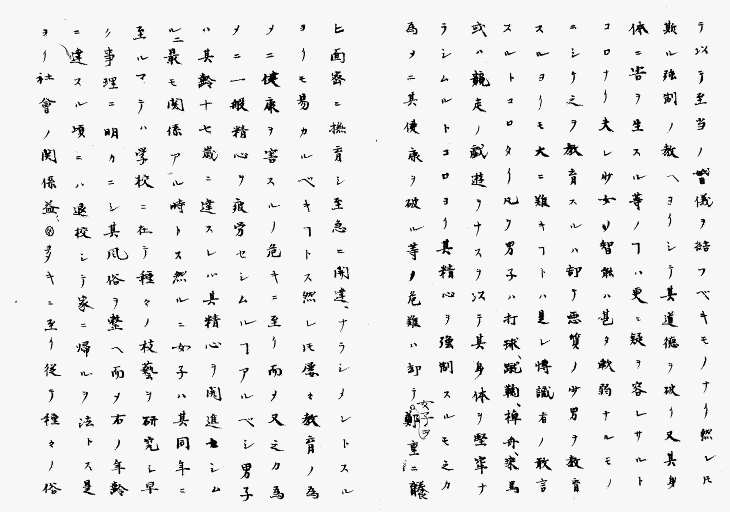 テ以テ至当ノ礼儀ヲ결フベキモノナリ然レ𪜈
斯ル強制ノ教ヘヨリシテ其道徳ヲ破リ又其身
体ニ害ヲ生スル等ノヿハ更ニ疑ヲ容レサルト
コロナリ夫レ少女ノ智能ハ甚タ軟弱ナルモノ
ニシテ之ヲ教育スルハ却テ悪質ノ少男ヲ教育
スルヨリモ大ニ難キヿトハ是レ博識者ノ敢言
スルトコロタリ凡ヲ男子ハ打球、蹴鞠、棹舟、乗馬
或ハ競走ノ戯遊ヲナスヲ以テ其身体ヲ堅牢ナ
ラシムルトコロヨリ其精心ヲ強制スルモ之カ
為メニ其健康ヲ破ル等ノ危難ハ却テ女子ヲ鄭重ニ
ヒ面密ニ撫育シ至急ニ開達ナラシメントスル
ヨリモ易カルベキヿトス然レ𪜈屡々教育ノ為
メニ健康ヲ害スルノ危キニ至リ而メ又之カ為
メニ一般精心ヲ疲労セシムルヿアルベシ男子
ハ其齢十七歳ニ達スレハ其精心ヲ開進セシム
ルニ最モ関係アル時トス然ルニ女子ハ其同年ニ
至ルマテハ学校ニ在テ種々ノ技藝ヲ研究シ早
ク事理ニ明クニシ其風俗ヲ整ヘ而メ右ノ年齢
ニ達スル頃ニハ退校シテ家ニ帰ルヲ法トス是
ヨリ社會ノ関係益多キニ至リ従テ種々ノ俗